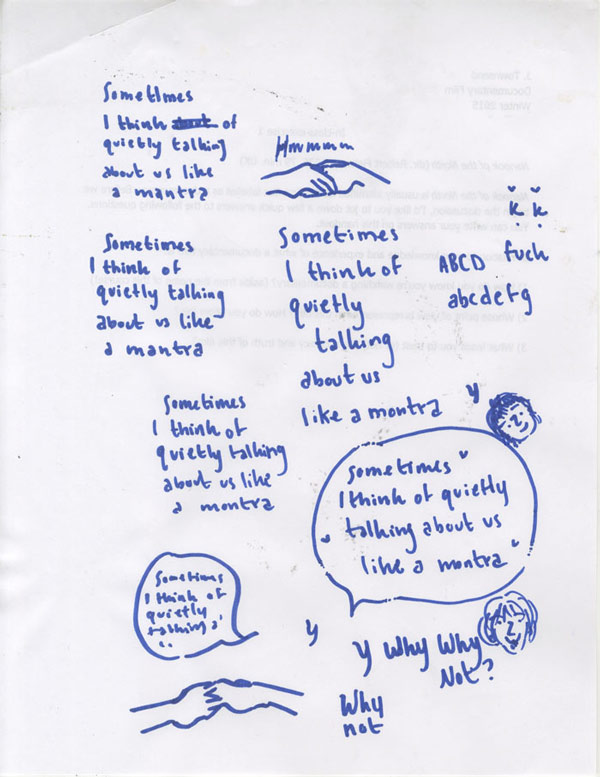 J. Townsend
Documentary Film
Winter 2015
Sometimes
I think of
quietly talking
about us like
a mantra
Hmmmm
Sometimes
I think of
quietly talking
about us like
a mantra
Sometimes
I think of
quietly
talking
about us
like a montra
k k
fuck
ABCD
abcdefg
Sometimes
I think of
quietly talking
about us like
a montra
y
sometimes
I think of quietly
talking about us
like a montra
Sometimes
I think of
quietly
talking
y
y Why Why
Not?
Why
not